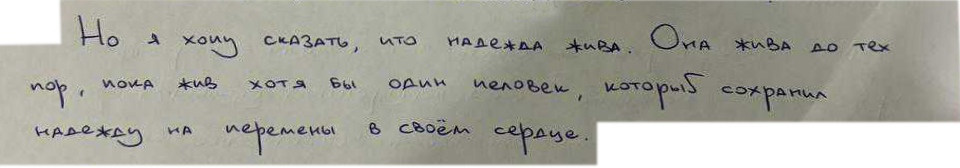 Но я хочу сказать, что надежда жива. Она жива до тех
пор, пока жив хотя бы один человек, который сохранил
надежду на перемены в своём сердце.